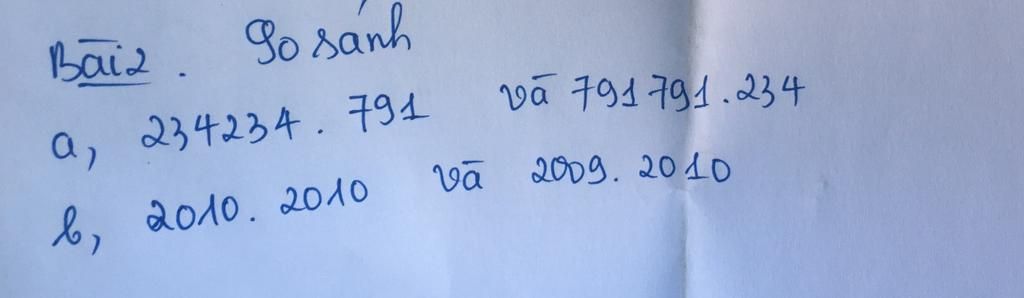 Bài 2. So sánh
a, 234234. 791 và 791791.234
b, 2010. 2010 và 2009. 2010